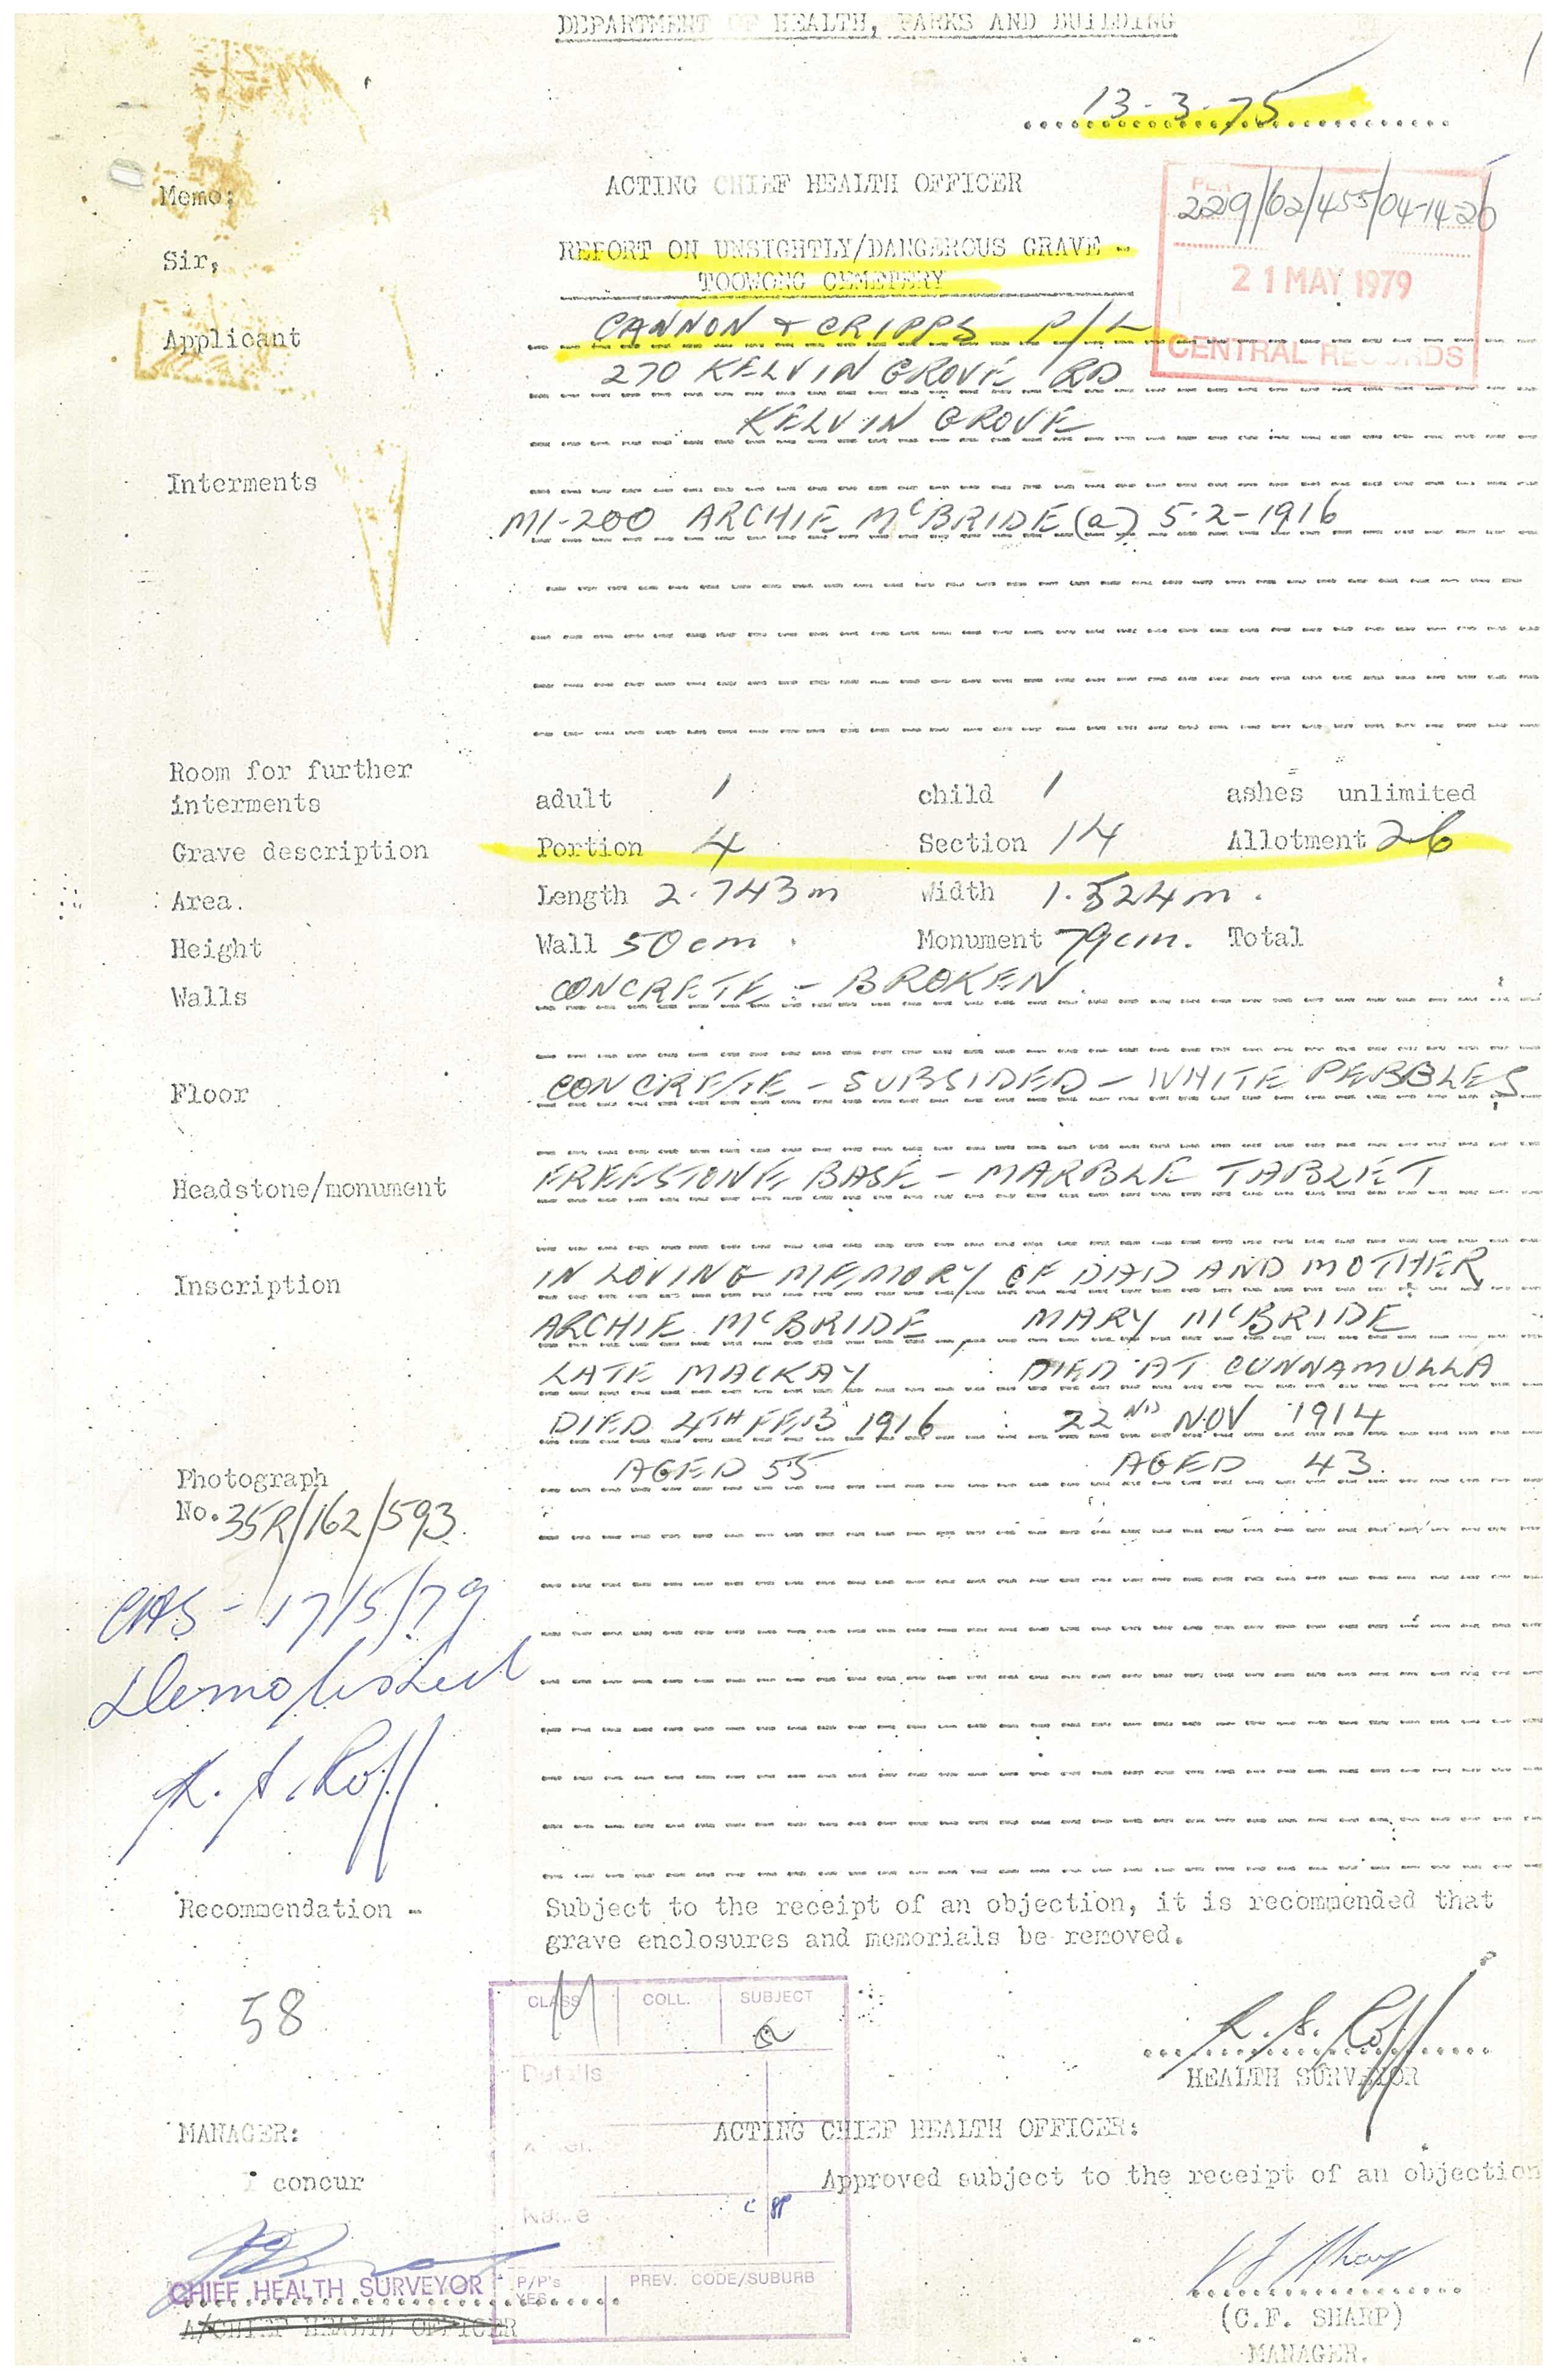 DEPARTMENT OF HEALTH, PARKS AND BUILDING
13-3-75
Memo: ACTING CHIEF HEALTH OFFICER
229/62/455/04-14-26
Sir, REPORT ON UNSIGHTLY/DANGEROUS GRAVE -
TOOWONG CEMETERY
21 MAY 1979
CENTRAL RECORDS
Applicant CANNON & CRIPPS P/L
270 KELVIN GROVE RD
KELVIN GROVE
Interments
M1-200 ARCHIE McBRIDE (a) 5-2-1916
Room for further
interments adult 1 child 1 ashes unlimited
Grave description Portion 4 Section 14 Allotment 26
Area. Length 2.743m Width 1.524m.
Height Wall 50cm. Monument 79cm. Total
Walls CONCRETE - BROKEN.
Floor CONCRETE - SUBSIDED - WHITE PEBBLES
Headstone/monument FREESTONE BASE - MARBLE TABLET
Inscription IN LOVING MEMORY OF DAD AND MOTHER
ARCHIE McBRIDE, MARY McBRIDE
LATE MACKAY : DIED AT CUNNAMULLA
DIED 4TH FEB 1916 : 22ND NOV 1914
AGED 55 AGED 43.
Photograph
No. 35R/162/593.
17/5/79
Demolished
R. S. Roff
Recommendation - Subject to the receipt of an objection, it is recommended that
grave enclosures and memorials be removed.
58
CLASS COLL. SUBJECT
Details
R. S. Roff
HEALTH SURVEYOR
MANAGER: ACTING CHIEF HEALTH OFFICER:
I concur Approved subject to the receipt of an objection
Name
CHIEF HEALTH SURVEYOR
P/P's PREV. CODE/SUBURB
YES
A/CHIEF HEALTH OFFICER
(C.F. SHARP)
MANAGER.